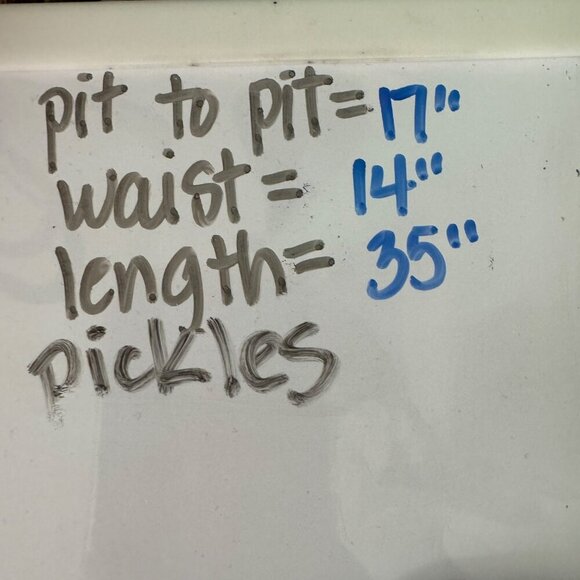 pit to pit= 17"
waist = 14"
length= 35"
pickles